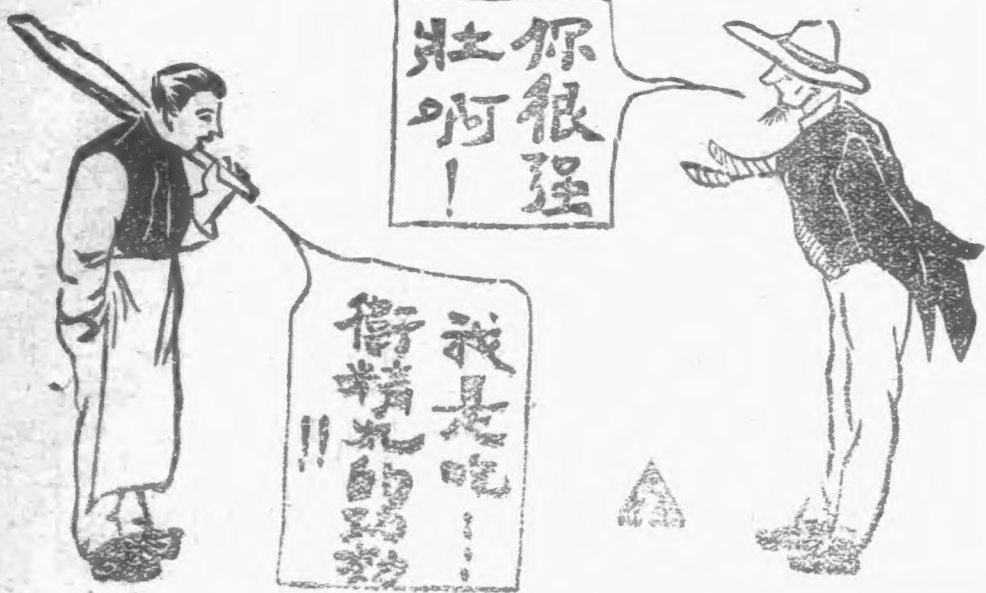 你很强
壯啊！
我是吃……
衛精丸的功效
!!